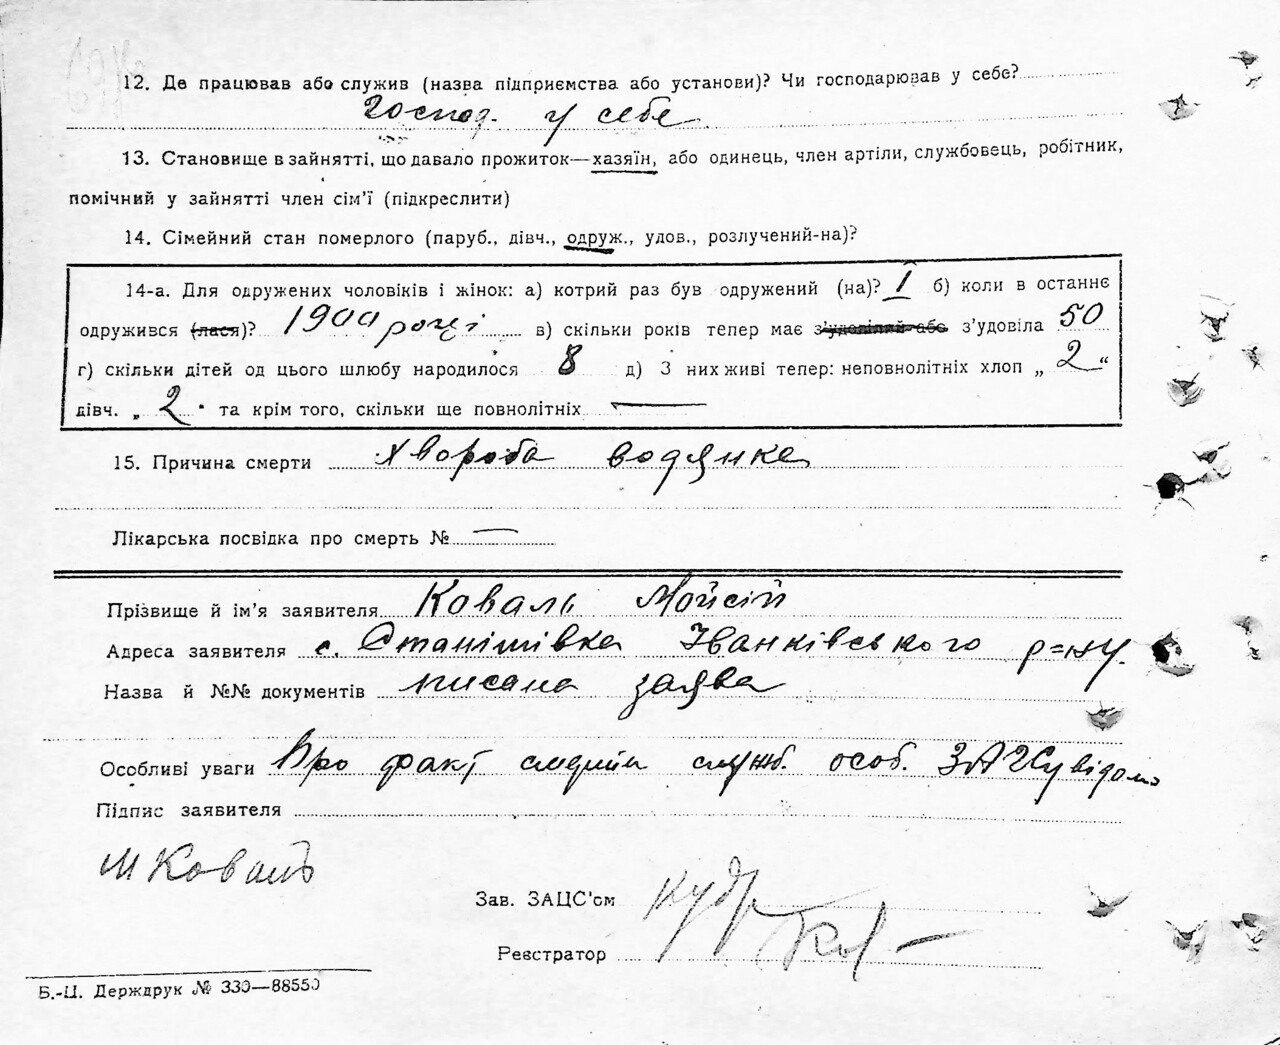 12. Де працював або служив (назва підприємства або установи)? Чи господарював у себе?
Господ. у себе
13. Становище в зайнятті, що давало прожиток—хазяїн, або одинець, член артіли, службовець, робітник,
помічний у зайнятті член сім'ї (підкреслити)
14. Сімейний стан померлого (паруб., дівч., одруж., удов., розлучений-на)?
14-а. Для одружених чоловіків і жінок: а) котрий раз був одружений (на)? 1 б) коли в останнє
одружився (лася)? 1900 році в) скільки років тепер має з'удовілий або з'удовіла 50
г) скільки дітей од цього шлюбу народилося 8 д) З них живі тепер: неповнолітніх хлоп „ 2 “
дівч. „ 2 " та крім того, скільки ще повнолітніх —
15. Причина смерти Хвороба водянка
Лікарська посвідка про смерть № —
Прізвище й ім'я заявителя Коваль Мойсій
Адреса заявителя с. Станішівка Іванківського р=ну.
Назва й №№ документів писана заява
Особливі уваги Про факт смерти служб. особ. ЗАГСу відомо
Підпис заявителя
М Коваль
Зав. ЗАЦС'ом
Реєстратор
Б.-Ц. Держдрук № 330—88550